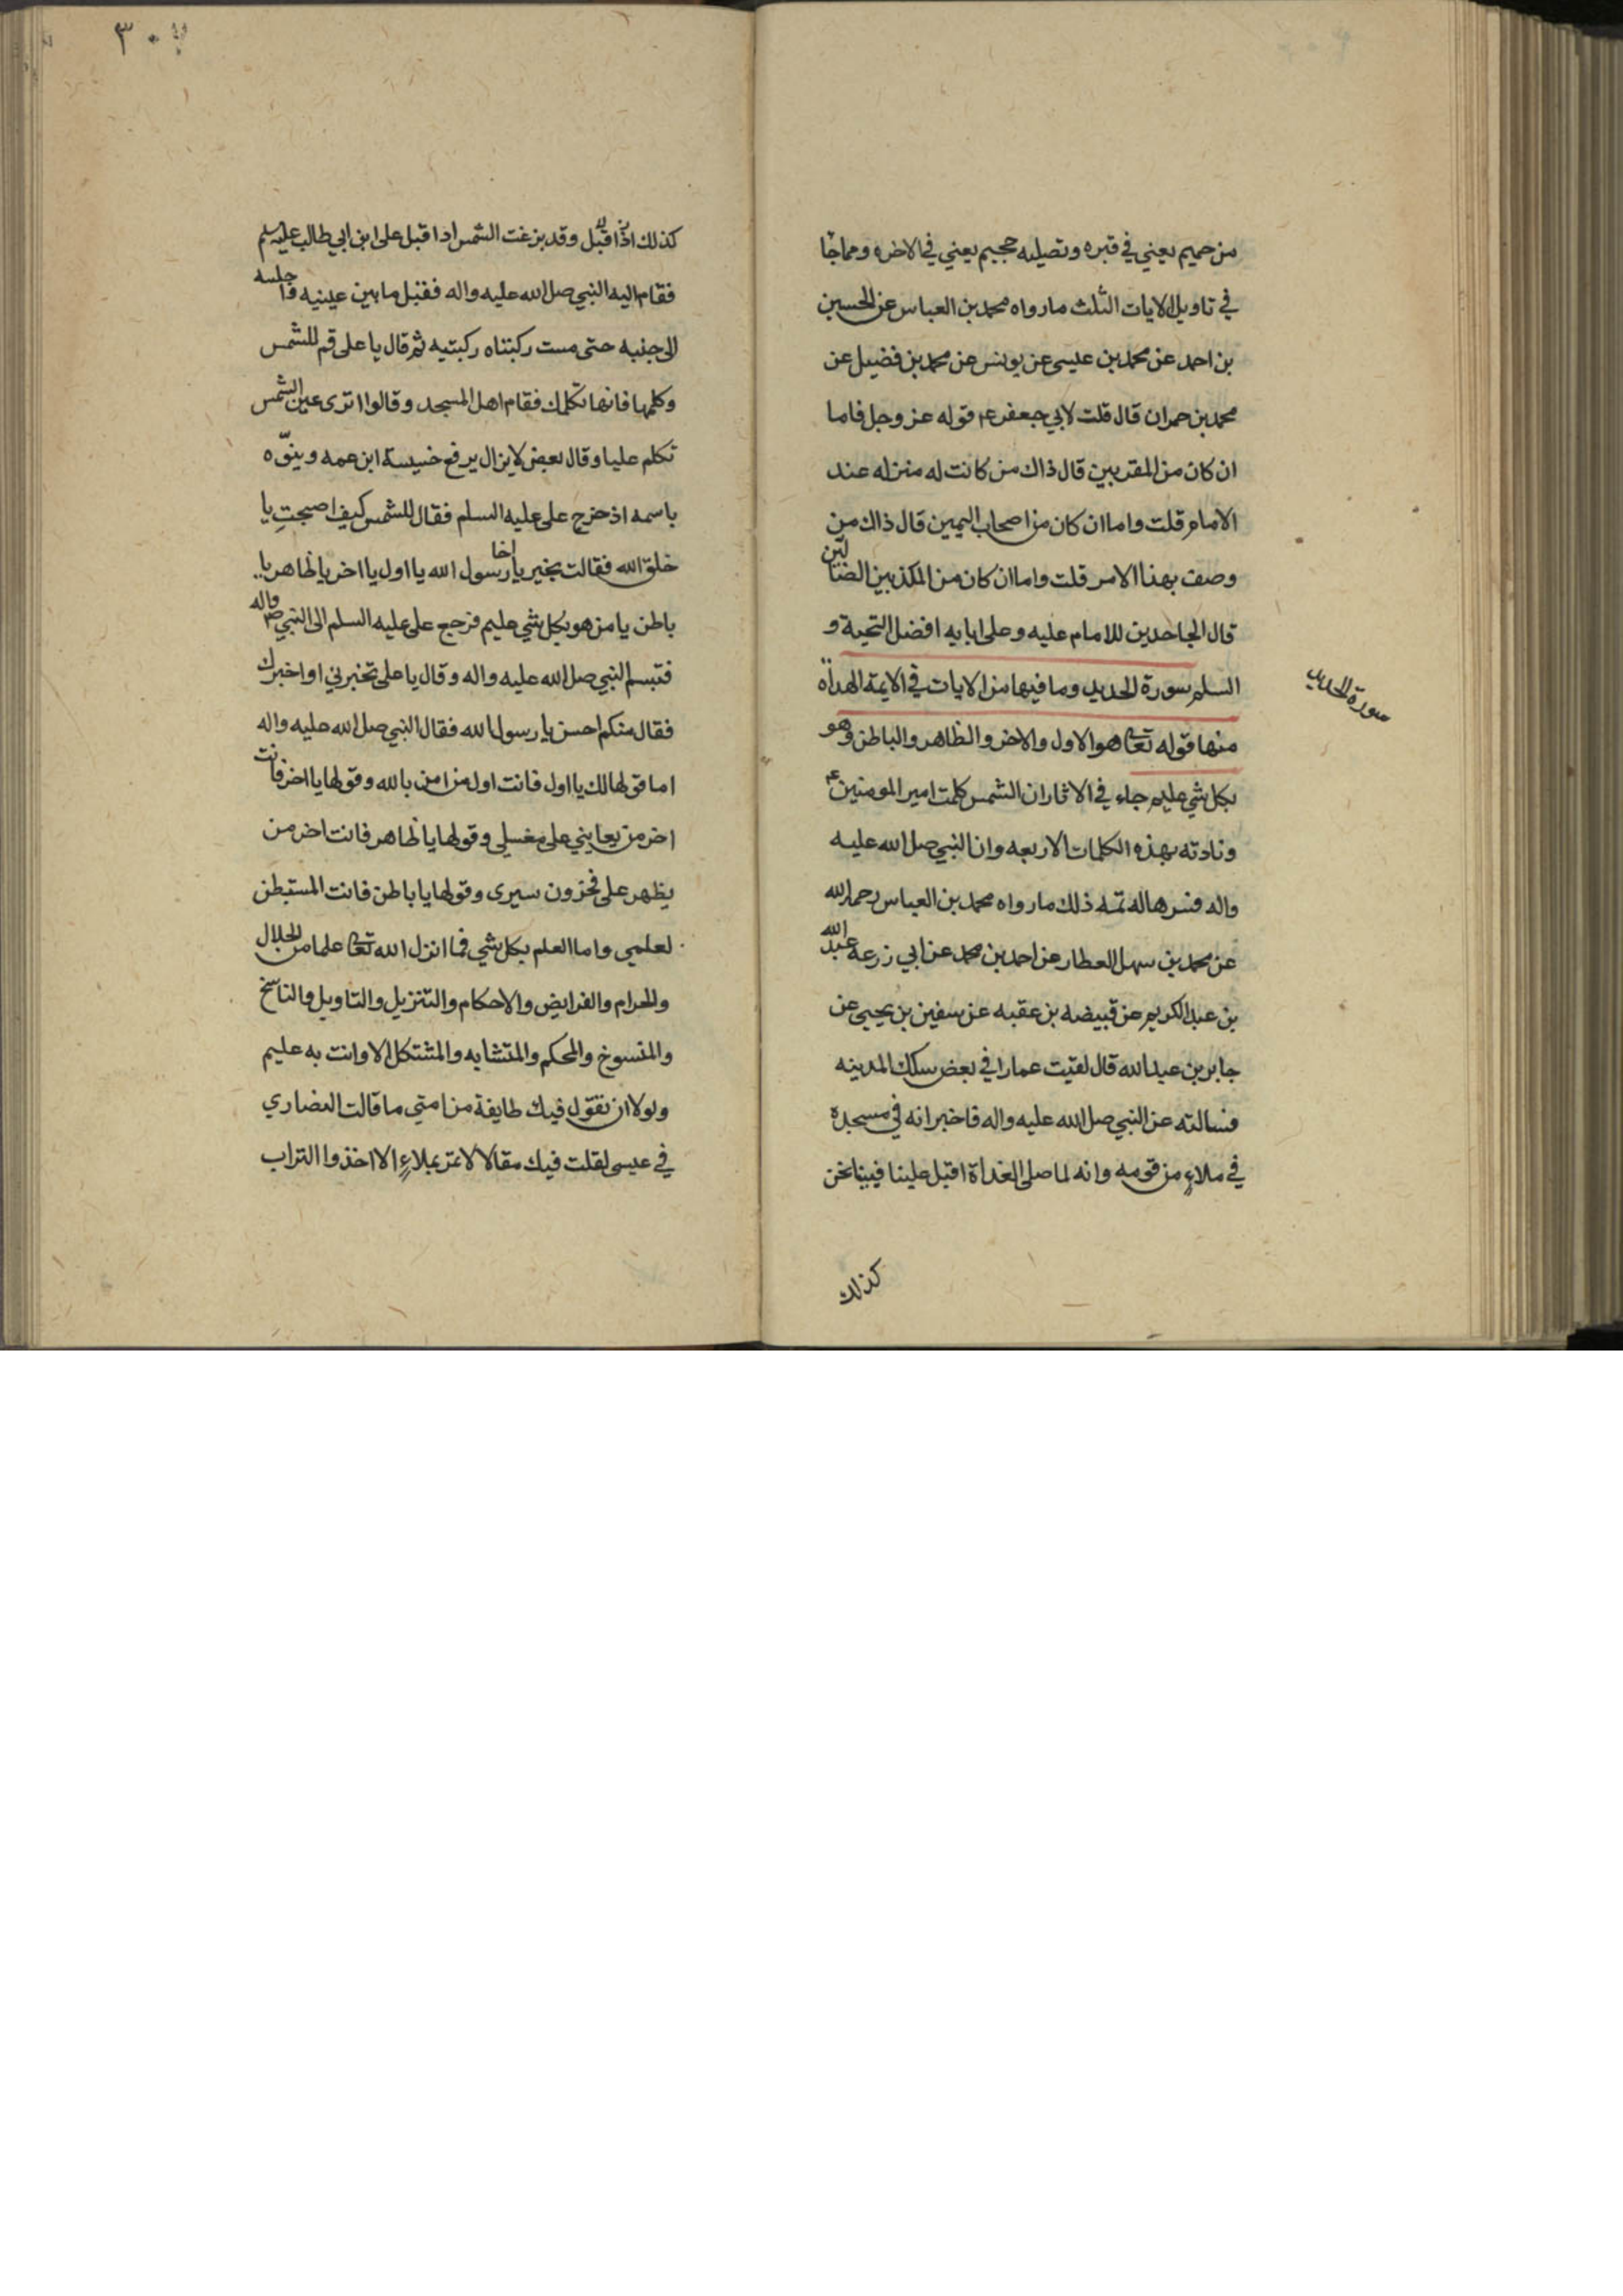 من حميم يعني في قبره وتصليه جحيم يعني في الاخره ومما جا
في تاويل الايات الثلث ما رواه محمد بن العباس عن الحسين
بن احمد عن محمد بن عيسى عن يونس عن محمد بن فضيل عن
محمد بن حمران قال قلت لابي جعفر ع قوله عز وجل فاما
ان كان من المقربين قال ذاك من كانت له منزله عند
الامام قلت واما ان كان من اصحاب اليمين قال ذاك من
وصف بهذا الامر قلت واما ان كان من المكذبين الضالين
قال الجاحدين للامام عليه وعلى ابايه افضل التحية و
السلم سورة الحديد وما فيها من الايات في الايمة الهداة
سورة الحديد
منها قوله تعا هو الاول والاخر والظاهر والباطن وهو
بكل شي عليم جاء في الاثار ان الشمس كلمت امير المومنين ع
ونادته بهذه الكلمات الاربعه وان النبي صلى الله عليه
واله فسرها له تمه ذلك ما رواه محمد بن العباس رحمه الله
عن محمد بن سهل العطار عن احمد بن محمد عن ابي زرعه عبد الله
بن عبد الكريم عن قبيضه بن عقبه عن سفين بن يحيى عن
جابر بن عبد الله قال لقيت عمارا في بعض سكك المدينه
فسالته عن النبي صلى الله عليه واله فاخبر انه في مسجده
في ملاءٍ من قومه وانه لما صلى الغداة اقبل علينا فبينا نحن
كذلك
٣٠٧
كذلك اذا اقبل وقد بزغت الشمس اذا اقبل على ابن ابي طالب عليه سلم
فقام اليه النبي صلى الله عليه واله فقبل ما بين عينيه واجلسه
الى جنبه حتى مست ركبتاه ركبتيه ثم قال يا على قم للشمس
وكلمها فانها تكلمك فقام اهل المسجد وقالوا اترى عين الشمس
تكلم عليا وقال بعض لا يزال يرفع خسيسة ابن عمه وينوّه
باسمه اذ خرج على عليه السلم فقال للشمس كيف اصبحتِ يا
خلق الله فقالت بخير يا اخا رسول الله يا اول يا اخر يا ظاهر يا
باطن يا من هو بكل شي عليم فرجع على عليه السلم الى النبي ص واله
فتبسم النبي صلى الله عليه واله وقال يا على تخبرني او اخبرك
فقال منكم احسن يا رسول الله فقال النبي صلى الله عليه واله
اما قولها لك يا اول فانت اول من امن بالله وقولها يا اخر فانت
اخر من يعاينني على مغسلي وقولها يا ظاهر فانت اخر من
يظهر على مخزون سيرى وقولها يا باطن فانت المستبطن
لعلمي واما العلم بكل شي فما انزل الله تعا علما من الحلال
والحرام والفرايض والاحكام والتنزيل والتاويل والناسخ
والمنسوخ والمحكم والمتشابه والمشتكل الا وانت به عليم
ولولا ان تقول فيك طايفة من امتي ما قالت النصاري
في عيسى لقلت فيك مقالا لا تمر بملاءٍ الا اخذوا التراب